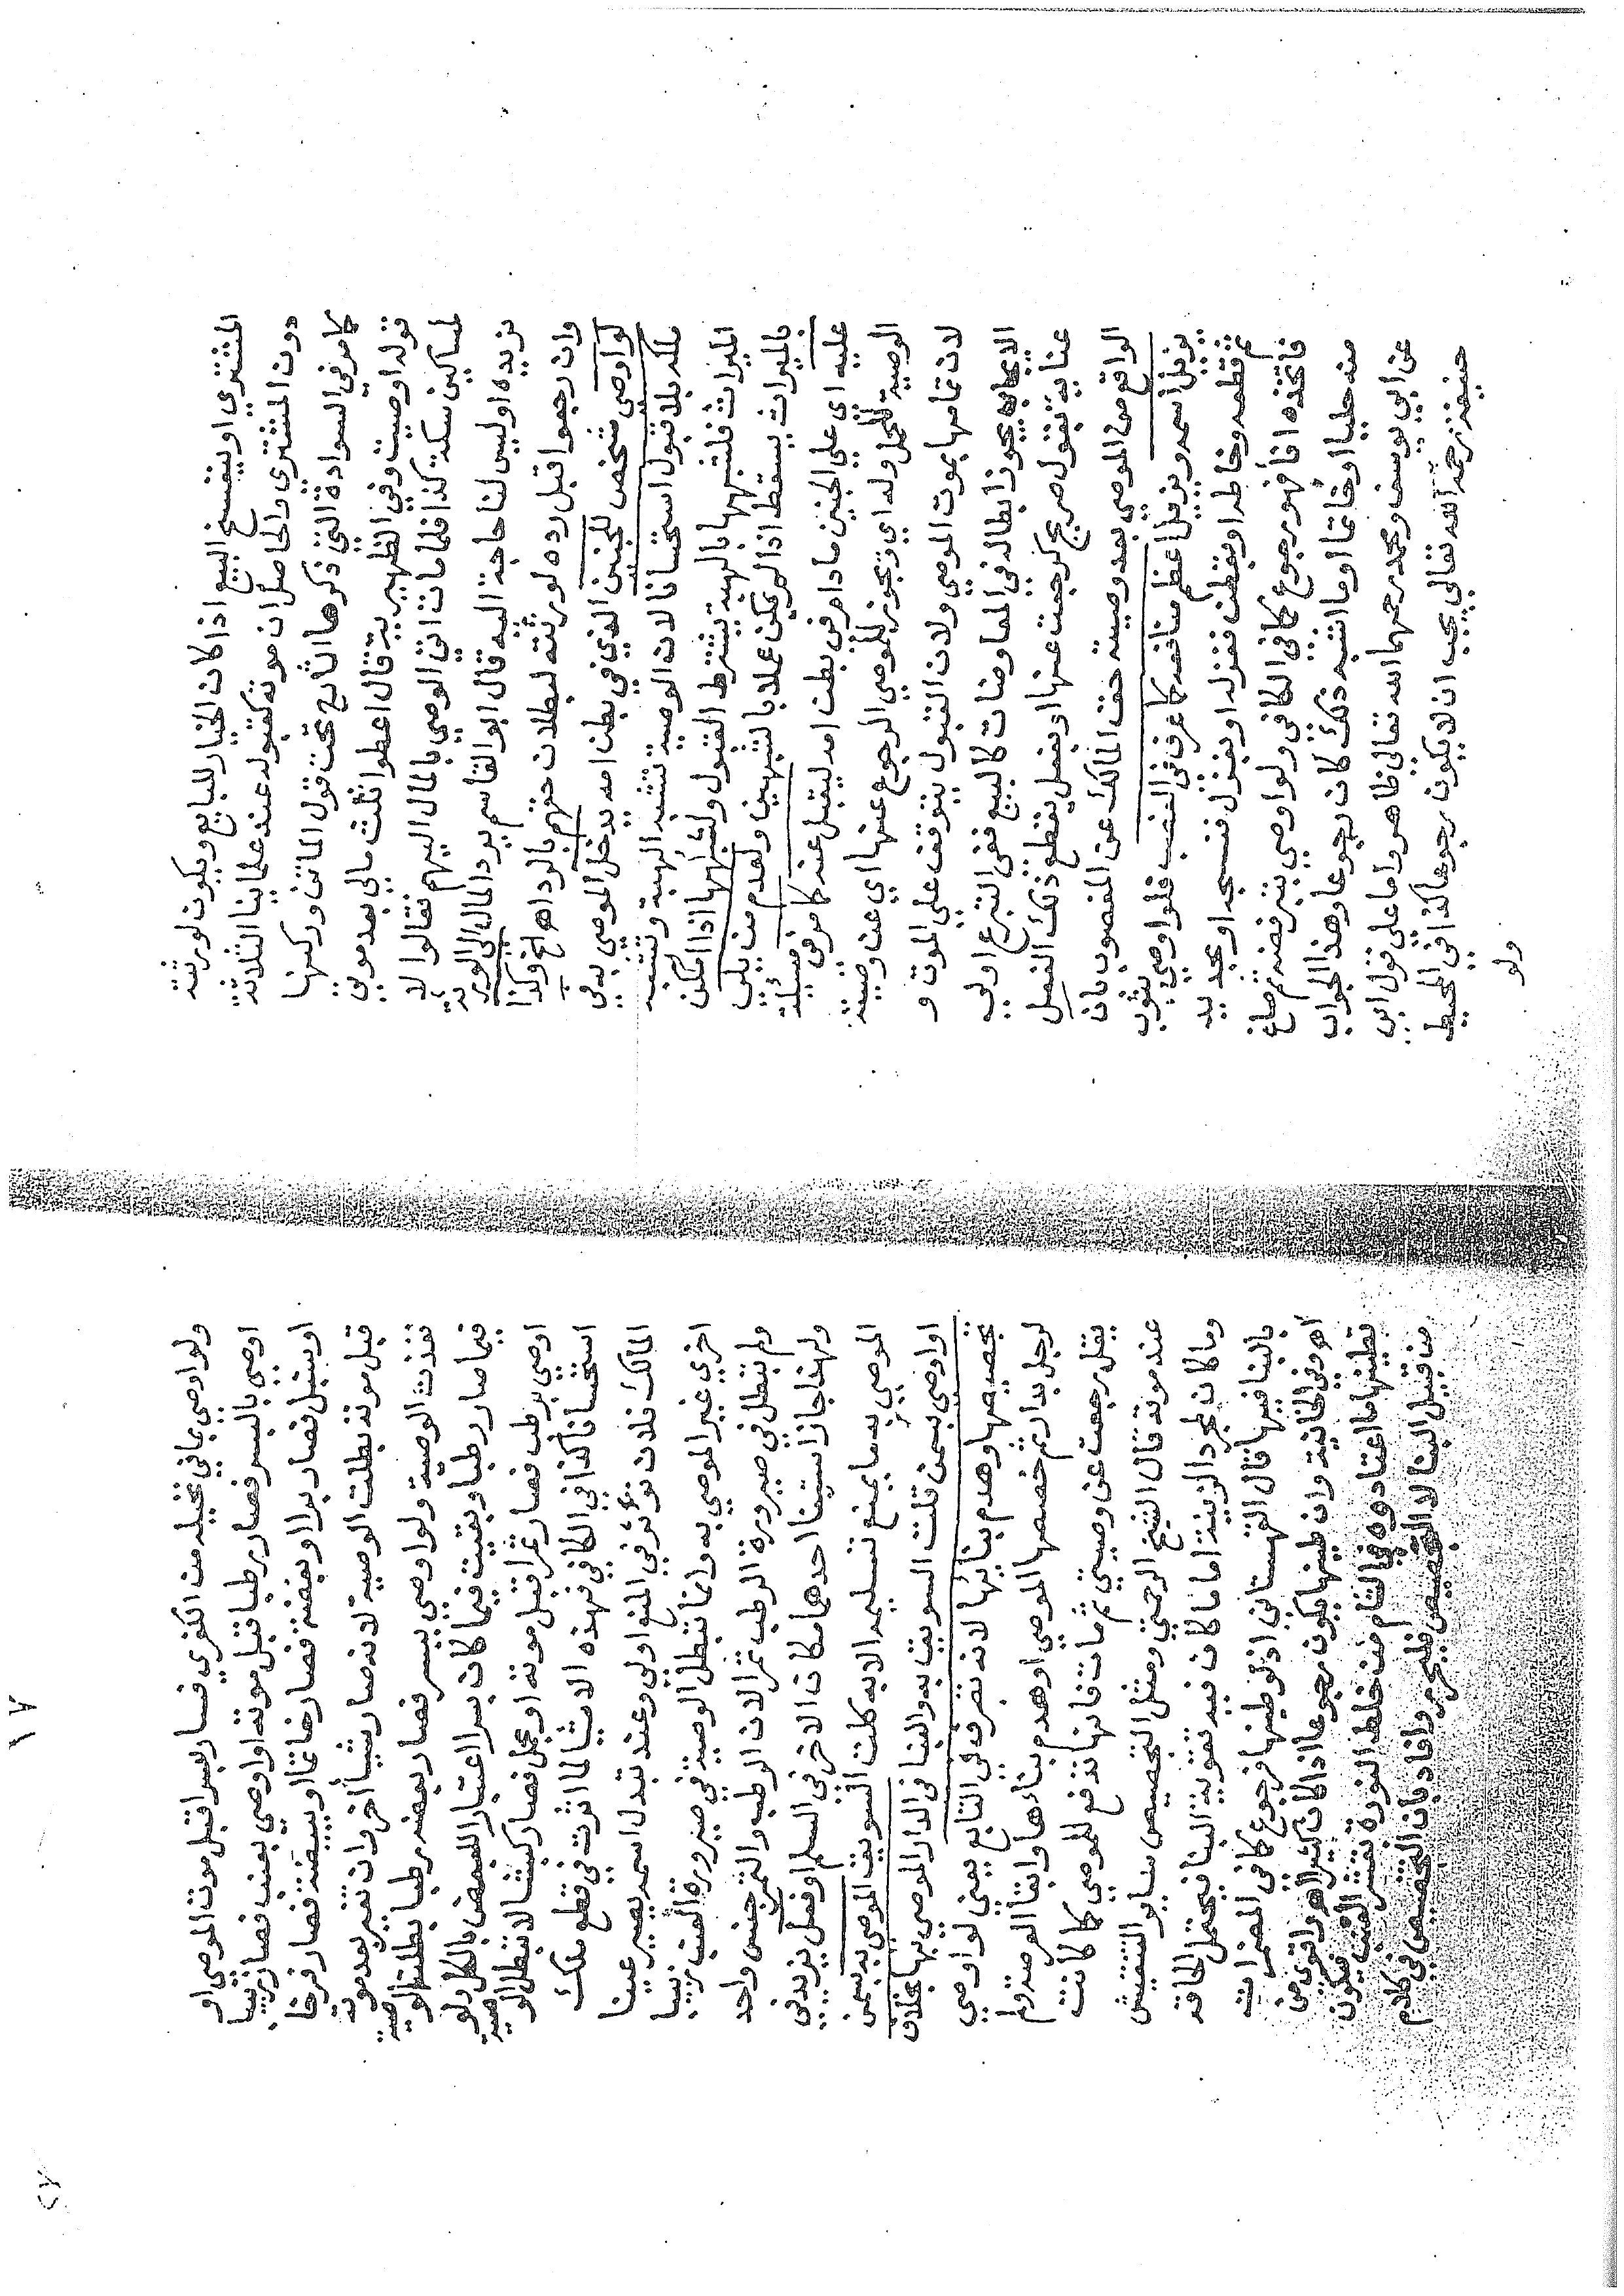 المشتري او يفسخ البيع اذا كان الخيار للبايع ويكون لورثته
دون المشتري والحاصل ان موته كقبوله عند علماينا الثلاثة
كما مر في السوادة التي ذكرها الشارح تحت قول الماتن وركنها
قوله اوصيت وفي الظهيرية قال اعطوا ثلث مالي بعد موتي
لمساكين سكة كذا فلما مات اتى الوصي بالمال اليهم فقالوا لا
نريده او ليس لنا حاجة اليه قال ابو القاسم يرد المال الى الورثة
وان رجعوا قبل رده لورثته لبطلان حقهم بالرد اهـ اخ وكذا
لو اوصى شخص للجنين الذي في بطن امه يدخل الموصي به في
ملكه بلا قبول استحسانا لان الوصية تشبه الهبة وتشبه
الميراث فلشبهها بالهبة يشترط القبول ولشبهها اذا امكن
بالميراث يسقط اذا لم يمكن عملا بالشبهين ولعدم من يلي
عليه اي على الجنين ما دام في بطن امه ليقبل عنه كما مر في مسئلة
الوصية للحمل وله اي ويجوز للموصي الرجوع عنها اي عن وصيته
لان تمامها بموت الموصي ولان القبول يتوقف على الموت و
الايجاب يجوز ابطاله في المعاوضات كالبيع ففي التبرع اولى
عناية بقول صريح كرجعت عنها او بفعل يقطع ذلك الفعل
الواقع من الموصي بعد وصيته حق المالك عن المغصوب بان
يزيل اسمه ويزيل اعظم منافعه كما عرف في الغصب فلو اوصى بثوب
ثم قطعه وخاطه او بقطن فغزله او بغزل فنسجه او بحديد
فاتخذه اناء فهو رجوع كما في الكافي ولو اوصي بتبر فضة ثم صاغ
منه حليا او خاتما او ما اشبه ذلك كان رجوعا وهذا الجواب
عن ابي يوسف ومحمد رحمهما الله تعالى ظاهر واما على قول ابي
حنيفة رحمه الله تعالى يجب ان لا يكون رجوعا كذا في المحيط
ولو
١٧
ولو اوصي بما في نخيله من الكفري فصار بسرا قبل موت الموصي او
اوصي بالبسر فصار رطبا قبل موته او اوصي بعنب فصار زبيبا
او سنبل فصار برا او بفضة فصار خاتما او ببيضة فصار فرخا
قبل موته بطلت الوصية لانه صار شيئا آخر وان تغير بعد موته
نفذت الوصية ولو اوصي ببسر فصار بعضه رطبا بطلت الوصية
فيما صار رطبا وبقيت فيما كان بسرا اعتبارا للبعض بالكل ولو
اوصي برطب فصار تمرا قبل موته او بحمل فصار كبشا لا تبطل الوصية
استحسانا كذا في الكافي فهذه الاشيا لما اثرت في قطع ملك
المالك فلان تؤثر في المنع اولى وعند تبدل اسمه يصير عينا
اخرى غير الموصي به وانما تبطل الوصية في صيرورة العنب زبيبا
ولم تبطل في صيرورة الرطب تمرا لان الرطب والتمر جنس واحد
ولهذا جاز استيفا احدهما مكان الاخر في السلم او فعل يزيد في
الموصي به ما يمنع تسليمه الا به كلت السويق الموصي به بسمن
او اوصى بسمن فلت السويق به والبنا في الدار الموصي بها بخلاف
تجصيصها وهدم بنائها لانه تصرف في التابع يعني لو اوصي
لرجل بدار ثم جصصها الموصي او هدم بناءها وابقا العرصة ولم
يقل رجعت عن وصيتي ثم مات فانها تدفع للموصي كما كانت
عند موته قال الشيخ الرحمتي ومثل التجصيص ساير التنقيش
وما كان لمجرد الزينة اما ما كان فيه تقوية البنا فيحتمل الحاقه
بالبنا فيها قال القهستاني اذ لو طينها فرجوع كما في المضمرات
اهـ وفي الخانية وان طينها يكون رجوعا اذا كان كثيرا اهـ واقوى من
تطينها ما اعتادوه في الشام من خلط النورة بقشر القنب فيكون
من قبيل البنا لا التجصيص فليحرر وافاد بان التجصيص في كلام